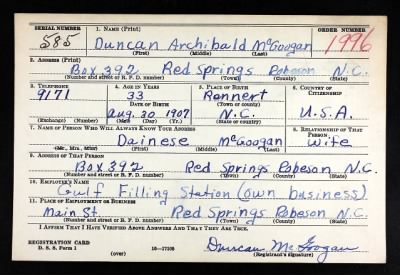 SERIAL NUMBER 1. NAME (Print) ORDER NUMBER
585 Duncan Archibald McGoogan 1996
(First) (Middle) (Last)
2. ADDRESS (Print)
Box 392 Red Springs Robeson N.C.
(Number and street or R. F. D. number) (Town) (County) (State)
3. TELEPHONE 4. AGE IN YEARS 5. PLACE OF BIRTH 6. COUNTRY OF CITIZENSHIP
9171 33 Rennert
DATE OF BIRTH (Town or county)
Aug. 30 1907 N.C. U.S.A.
(Exchange) (Number) (Mo.) (Day) (Yr.) (State or country)
7. NAME OF PERSON WHO WILL ALWAYS KNOW YOUR ADDRESS 8. RELATIONSHIP OF THAT PERSON
Dainese McGoogan Wife
(Mr., Mrs., Miss) (First) (Middle) (Last)
9. ADDRESS OF THAT PERSON
Box 392 Red Springs Robeson N.C.
(Number and street or R. F. D. number) (Town) (County) (State)
10. EMPLOYER'S NAME
Gulf Filling Station (own business)
11. PLACE OF EMPLOYMENT OR BUSINESS
Main St. Red Springs Robeson N.C.
(Number and street or R. F. D. number) (Town) (County) (State)
I AFFIRM THAT I HAVE VERIFIED ABOVE ANSWERS AND THAT THEY ARE TRUE.
REGISTRATION CARD
D. S. S. Form 1 16—17105 Duncan McGoogan
(over) (Registrant's signature)